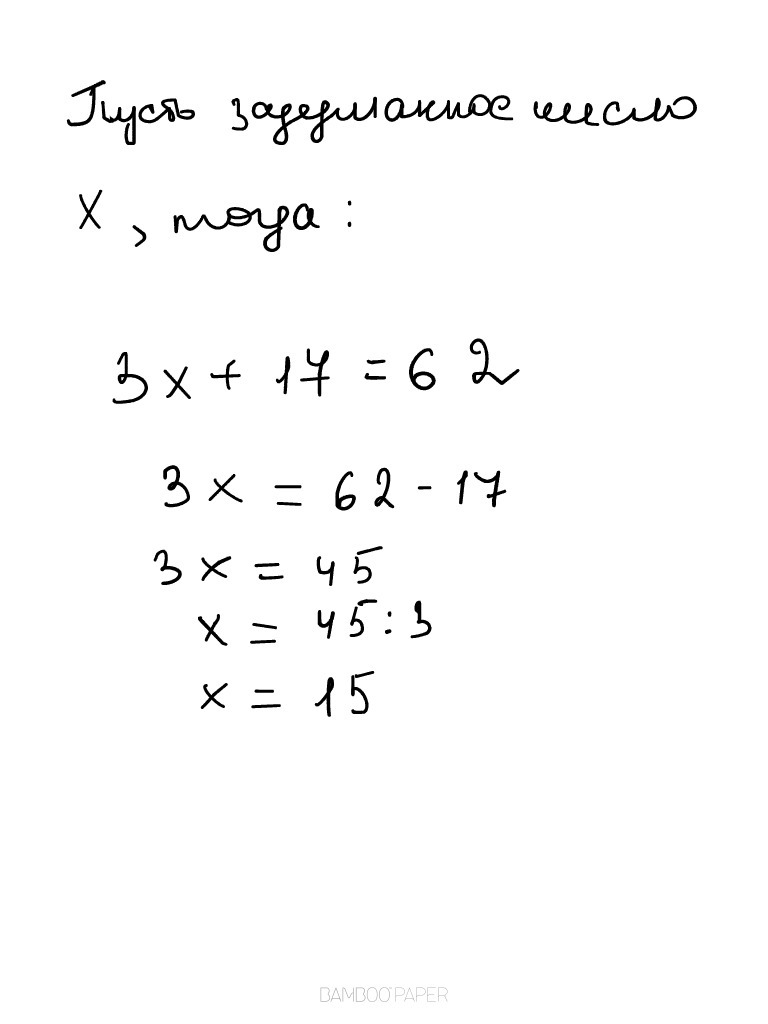 Пусть задуманное число
x, тогда:
3x + 17 = 62
3x = 62 - 17
3x = 45
x = 45 : 3
x = 15
BAMBOO PAPER